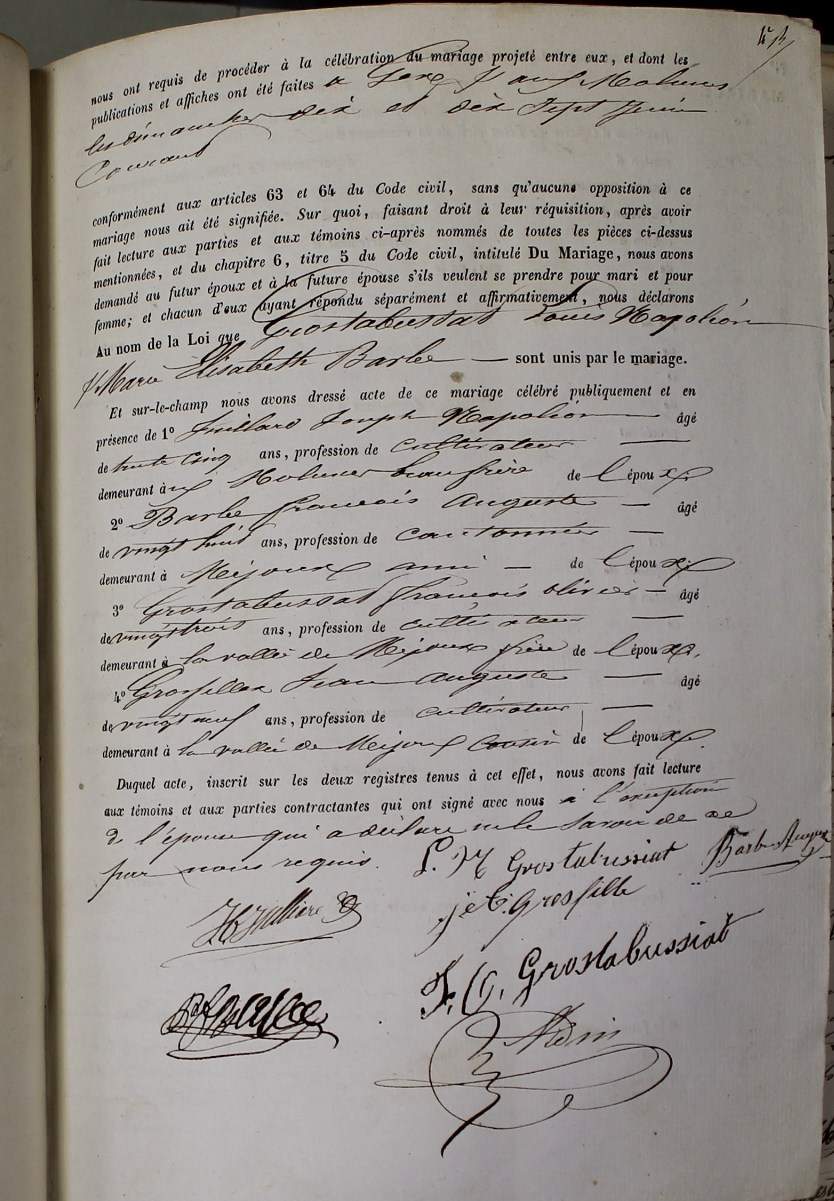 nous ont requis de procéder à la célébration du mariage projeté entre eux, et dont les
publications et affiches ont été faites a Gex & aux Molunes
les dimanches dix et dix Sept Juin
Courant
conformément aux articles 63 et 64 du Code civil, sans qu'aucune opposition à ce
mariage nous ait été signifiée. Sur quoi, faisant droit à leur réquisition, après avoir
fait lecture aux parties et aux témoins ci-après nommés de toutes les pièces ci-dessus
mentionnées, et du chapitre 6, titre 5 du Code civil, intitulé Du Mariage, nous avons
demandé au futur époux et à la future épouse s'ils veulent se prendre pour mari et pour
femme; et chacun d'eux ayant répondu séparément et affirmativement, nous déclarons
Au nom de la Loi que Grostabussiat Louis Napoléon
& Marie Elisabeth Barbe — sont unis par le mariage.
Et sur-le-champ nous avons dressé acte de ce mariage célébré publiquement et en
présence de 1° Joseph Napoléon — âgé
de trente cinq ans, profession de cultivateur —
demeurant à Molunes beau frère de l'époux
2° Barbe francois Auguste — âgé
de vingt huit ans, profession de cantonnier —
demeurant à Mijoux ami — de l'époux
3° Grostabussiat francois olivier — âgé
de vingt trois ans, profession de cultivateur —
demeurant à la vallée de Mijoux frère de l'époux.
4° Grosfillex Jean Auguste — âgé
de vingt neuf ans, profession de cultivateur —
demeurant à la vallée de Mijoux Cousin de l'époux.
Duquel acte, inscrit sur les deux registres tenus à cet effet, nous avons fait lecture
aux témoins et aux parties contractantes qui ont signé avec nous à l'exception
de l'épouse qui a déclaré ne le Savoir de ce
par nous requis. L. N Grostabussiat Barbe August
Grosfille
F. O. Grostabussiat